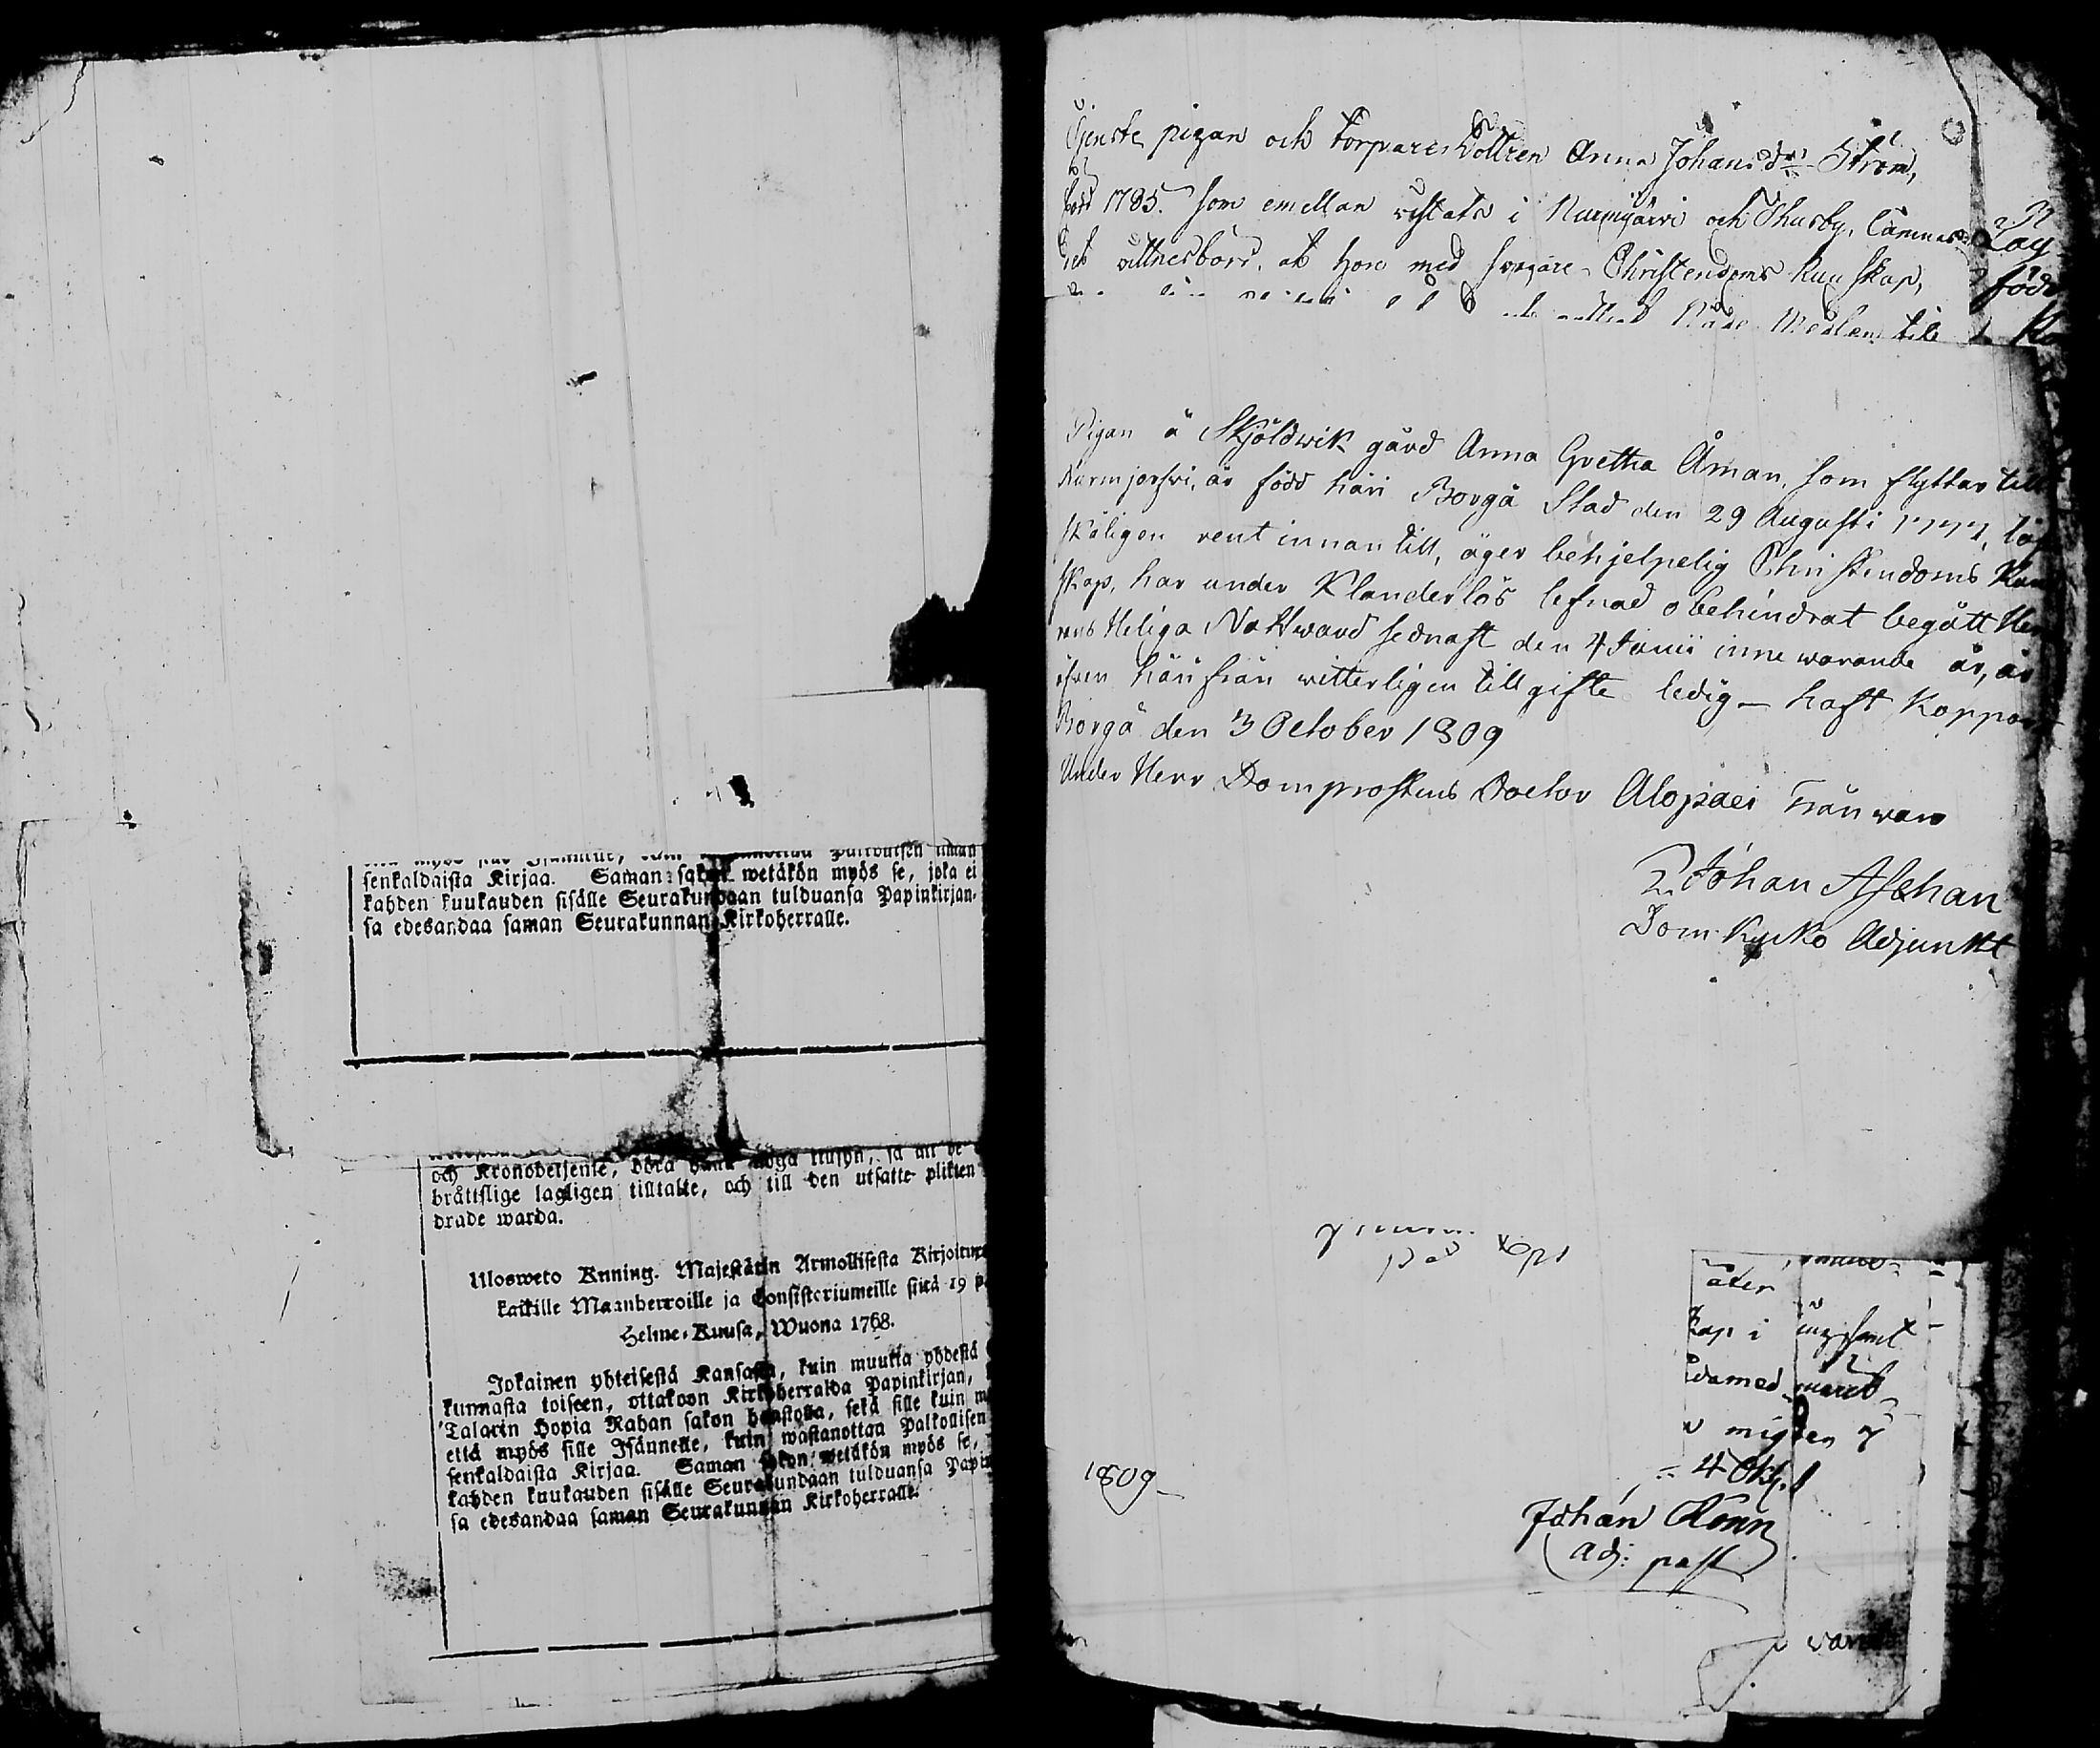 senkaldaista Kirjaa. Saman sakon wetäkön myös se, joka ei
kahden kuukauden sisälle Seurakundaan tulduansa Papinkirjan-
sa edesandaa saman Seurakunnan Kirkoherralle.
och Kronobetjente, böra
bråttslige lagligen tilltalte, och till den utsatte plikten
drade warda.
Ulosweto Kuning. Majestätin Armollisesta Kirjoituxe
kaikille Maanherroille ja Consistoriumeille siitä 19 p.
Helme-Kuusa, Wuona 1768.
Jokainen yhteisestä Kansasta, kuin muutta yhdestä
kunnasta toiseen, ottakoon Kirkoherralda Papinkirjan,
Talarin Hopia Rahan sakon haastolla, sekä sille kuin m
että myös sille Isännelle, kuin wastanottaa Palkollisen
senkaldaista Kirjaa. Saman sakon wetäkön myös se,
kahden kuukauden sisälle Seurakundaan tulduansa Papin
sa edesandaa saman Seurakunnan Kirkoherralle.
Tjenste pigan och torpare Dottren Anna Johansdr Ström,
född 1785. som emellan vistats i Nurmijärvi och Thusby, lämnas
det vittnesbörd, at hon med svagare Christendoms kunskap,
Medlem till
Lag
född
Pigan å Skjöldwik gård Anna Gretha Åman, som flyttar till
Nurmjerfwi, är född här i Borgå Stad den 29 Augusti 1777, läs
skäligen rent innantill, äger behjelpelig Christendoms Kun
skap, har under Klanderlös lefnad obehindrat begått Her
rans Heliga Nattward sednast den 4 Junii innewarande år, är
äfven härifrån witterligen till gifte ledig – haft Koppor
Borgå den 3 October 1809
Under Herr Domprostens Doctor Alopaei Frånwaro
Johan Aschan
Domkyrko Adjunkt
åter
kap i
4 Oct.
1809
Johan Rönn
adj: past